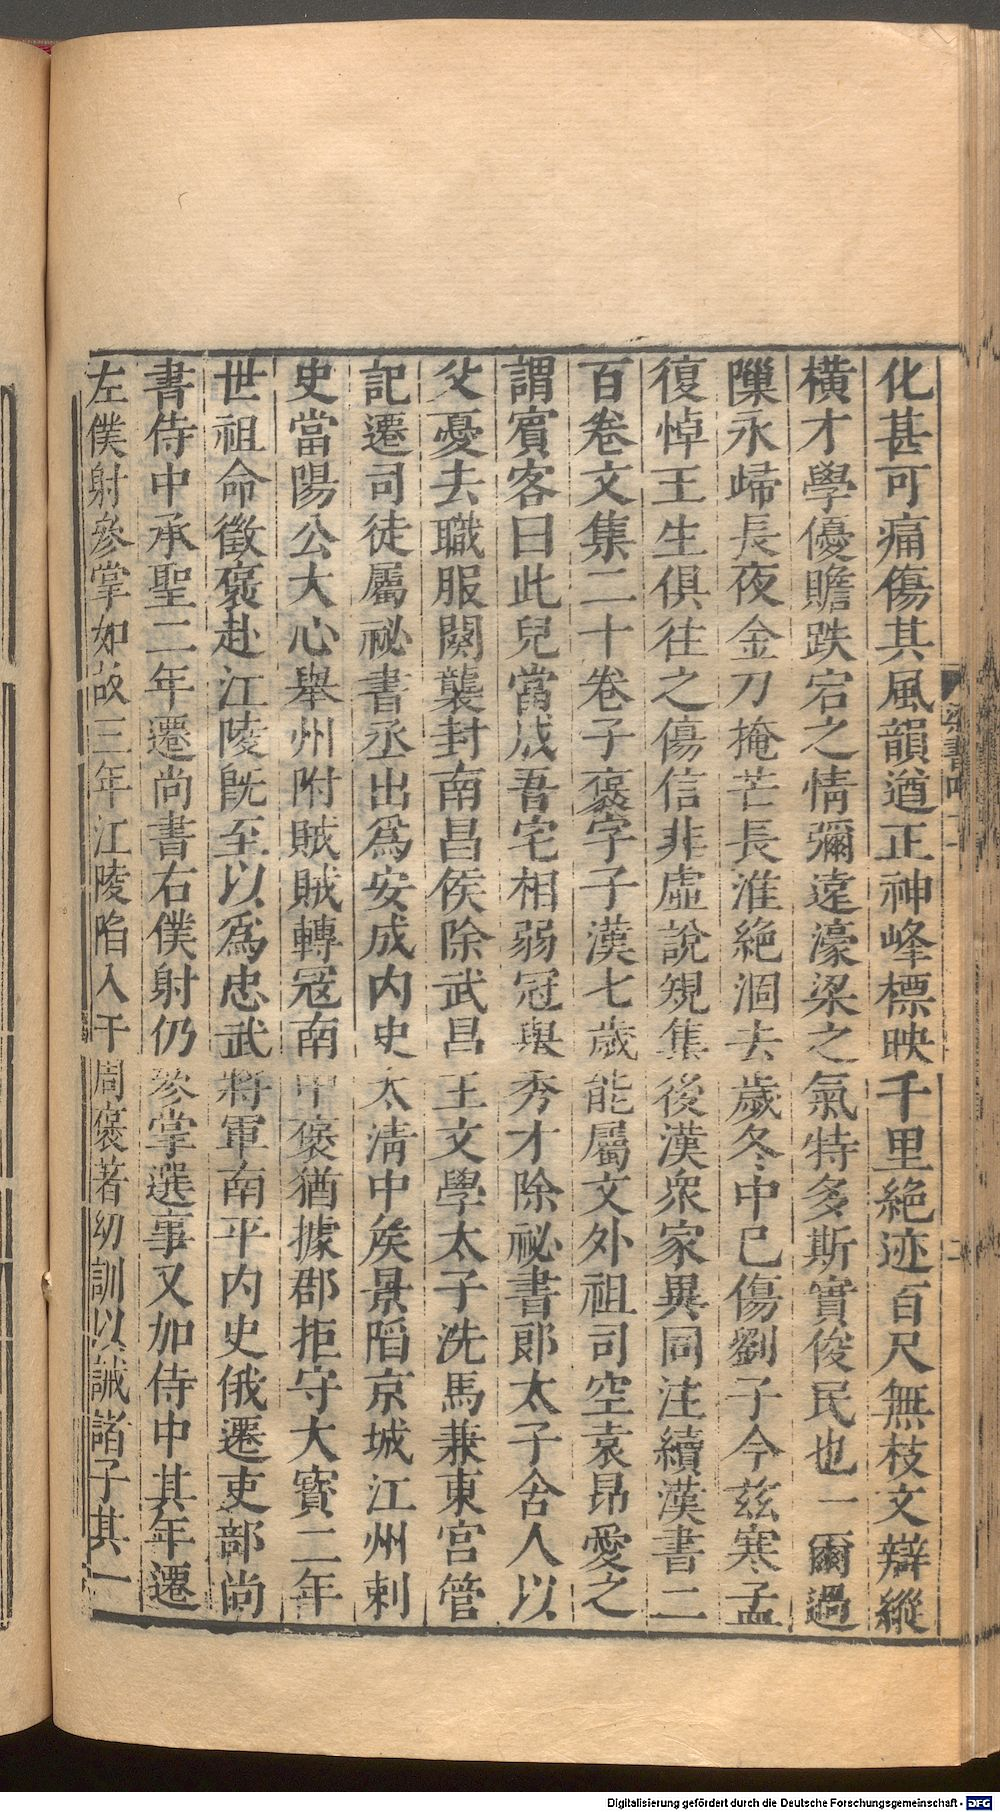 化甚可痛傷其風韻遒正神峰標映千里絕迹百尺無枝文辯縱
橫才學優贍跌宕之情彌遠濠梁之氣特多斯實俊民也一爾過
隟永歸長夜金刀掩芒長淮絕涸去歲冬中已傷劉子今茲寒孟
復悼王生俱往之傷信非虛說規集後漢衆家異同注續漢書二
百卷文集二十卷子褒字子漢七歲能屬文外祖司空袁昂愛之
謂賓客曰此兒當成吾宅相弱冠舉秀才除祕書郎太子舍人以
父憂去職服闋襲封南昌侯除武昌王文學太子洗馬兼東宮管
記遷司徒屬祕書丞出爲安成內史太清中矦景陷京城江州刺
史當陽公大心舉州附賊賊轉寇南中褒猶據郡拒守大寶二年
世祖命徵褒赴江陵旣至以爲忠武將軍南平內史俄遷吏部尚
書侍中承聖二年遷尚書右僕射仍參掌選事又加侍中其年遷
左僕射參掌如故三年江陵陷入于周褒著幼訓以誡諸子其一